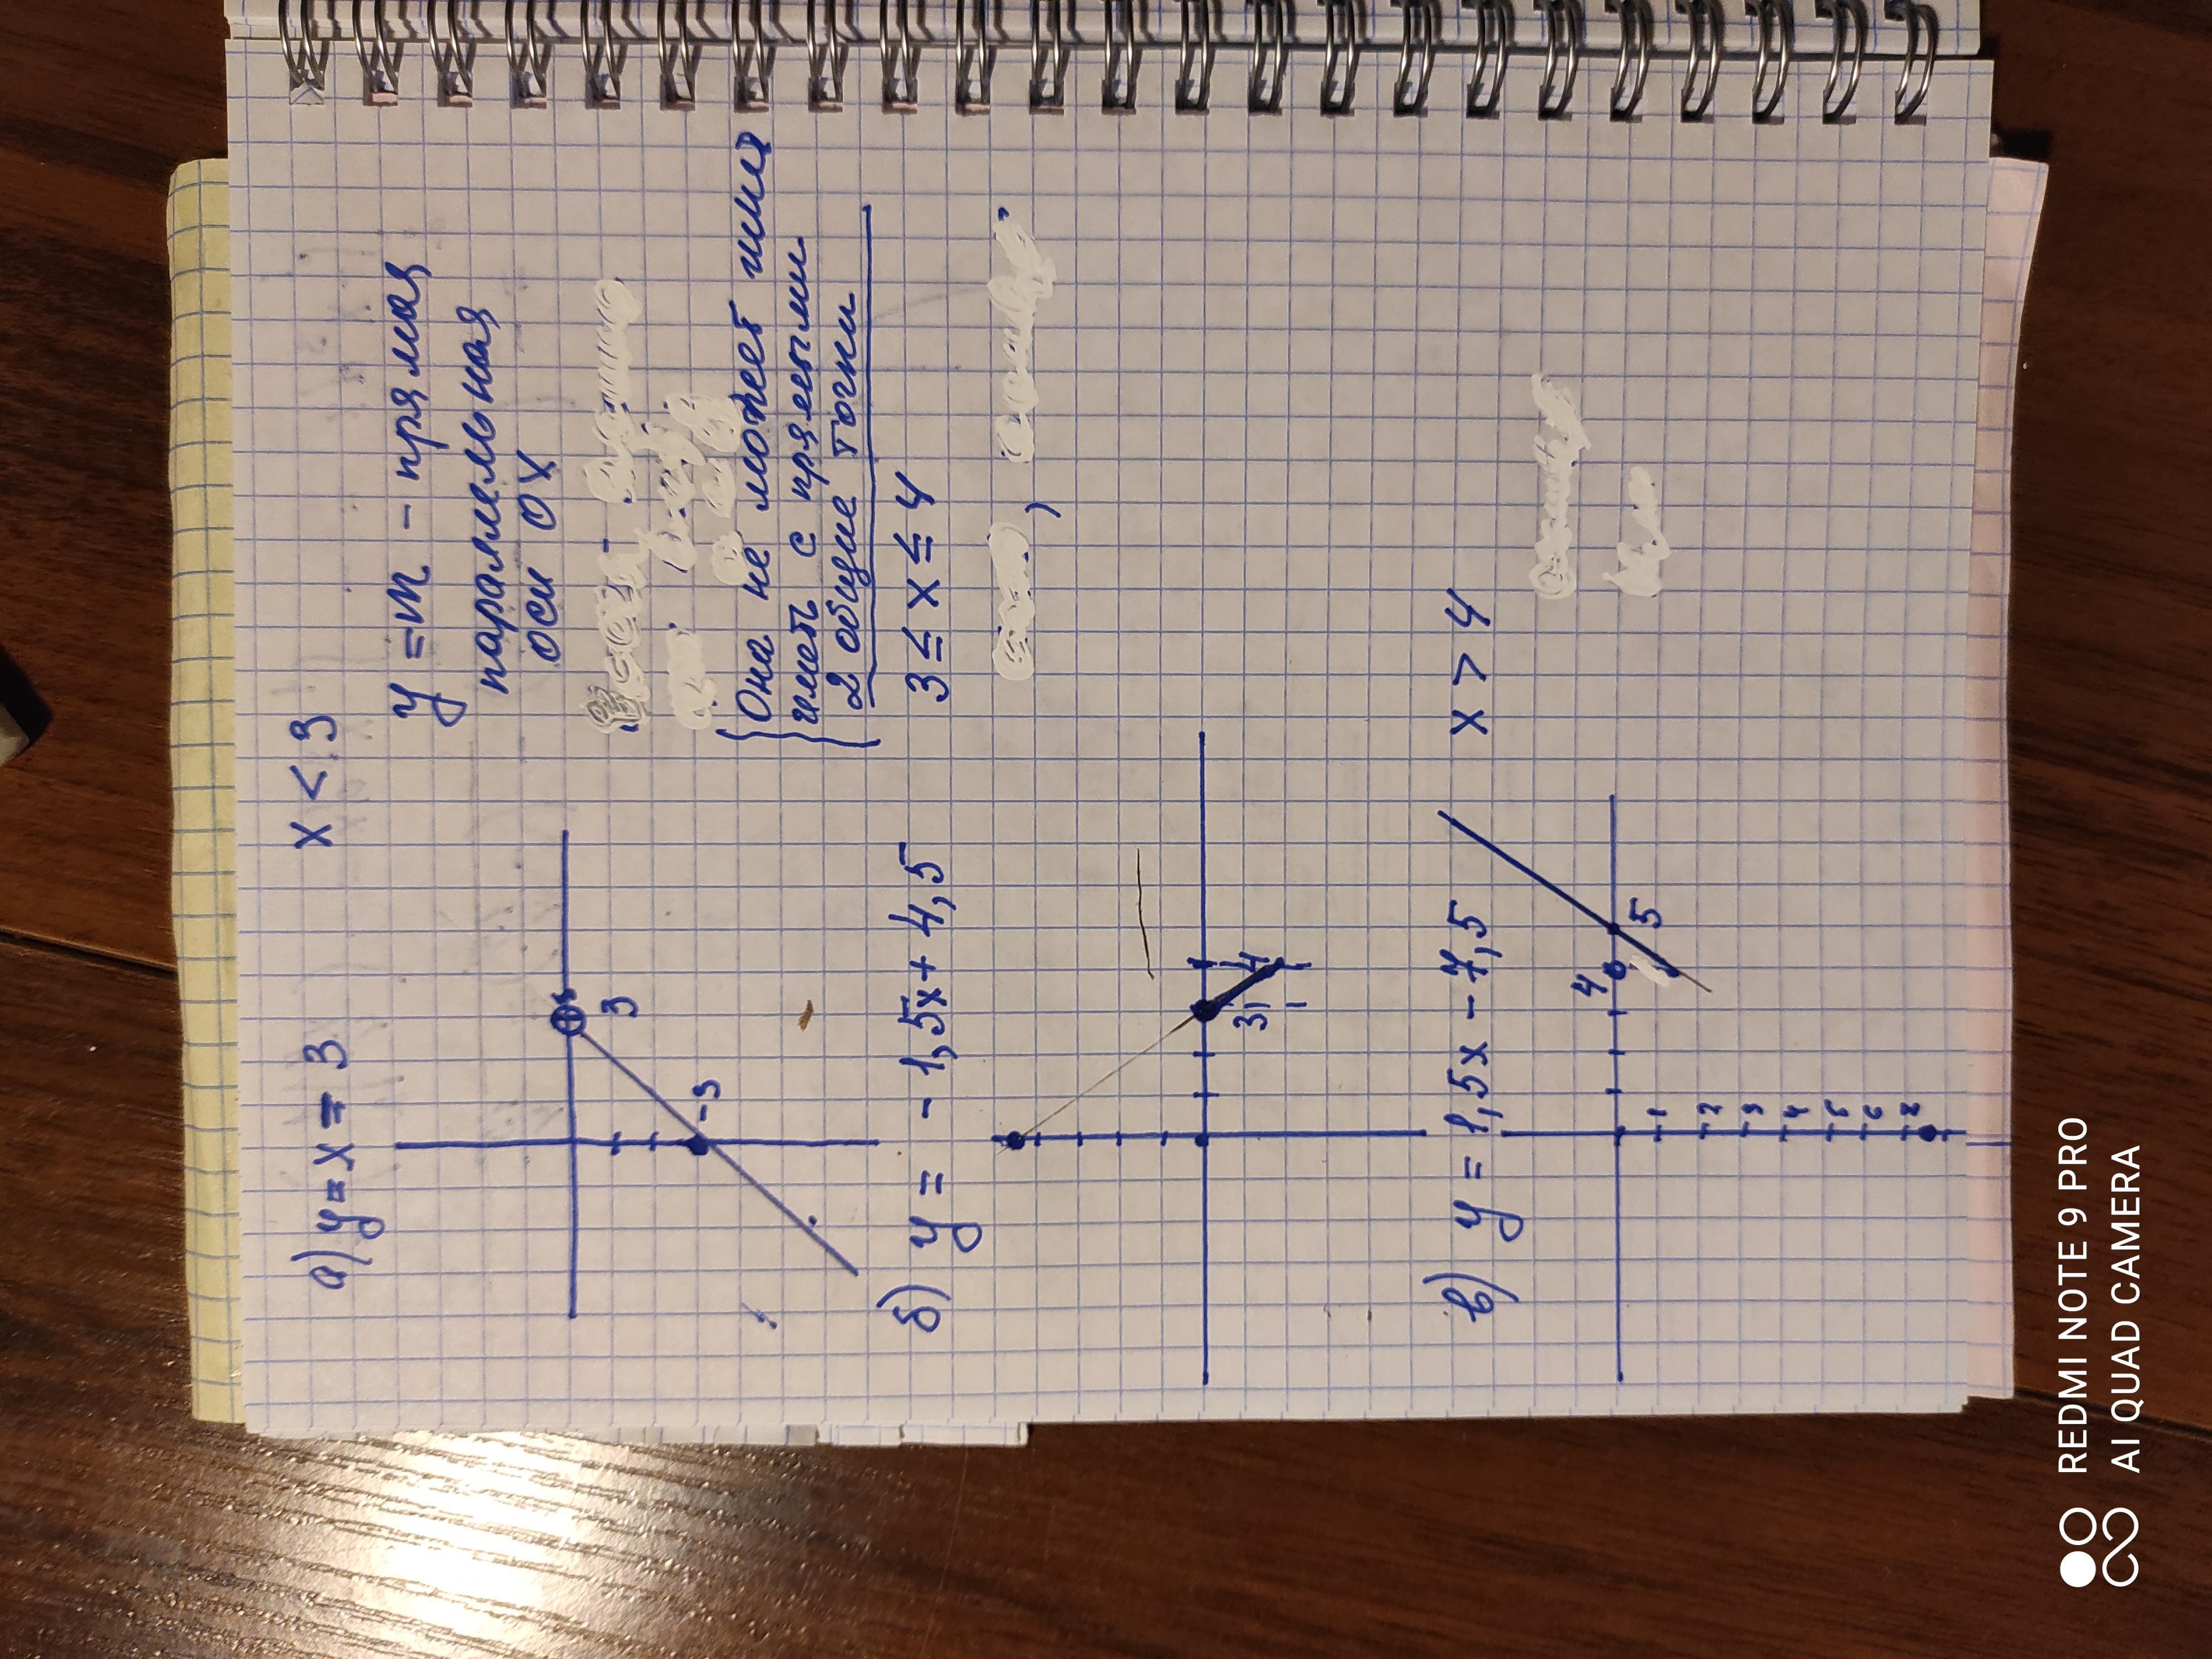 а) y = x - 3
x < 3
y = m - прямая
параллельная
оси OX
3
-3
Она не может ими
иметь с прямыми
2 общие точки
б) y = - 1,5x + 4,5
3 ≤ x ≤ 4
3
4
в) y = 1,5x - 7,5
x > 4
4
5
1
2
3
4
5
6
REDMI NOTE 9 PRO
AI QUAD CAMERA